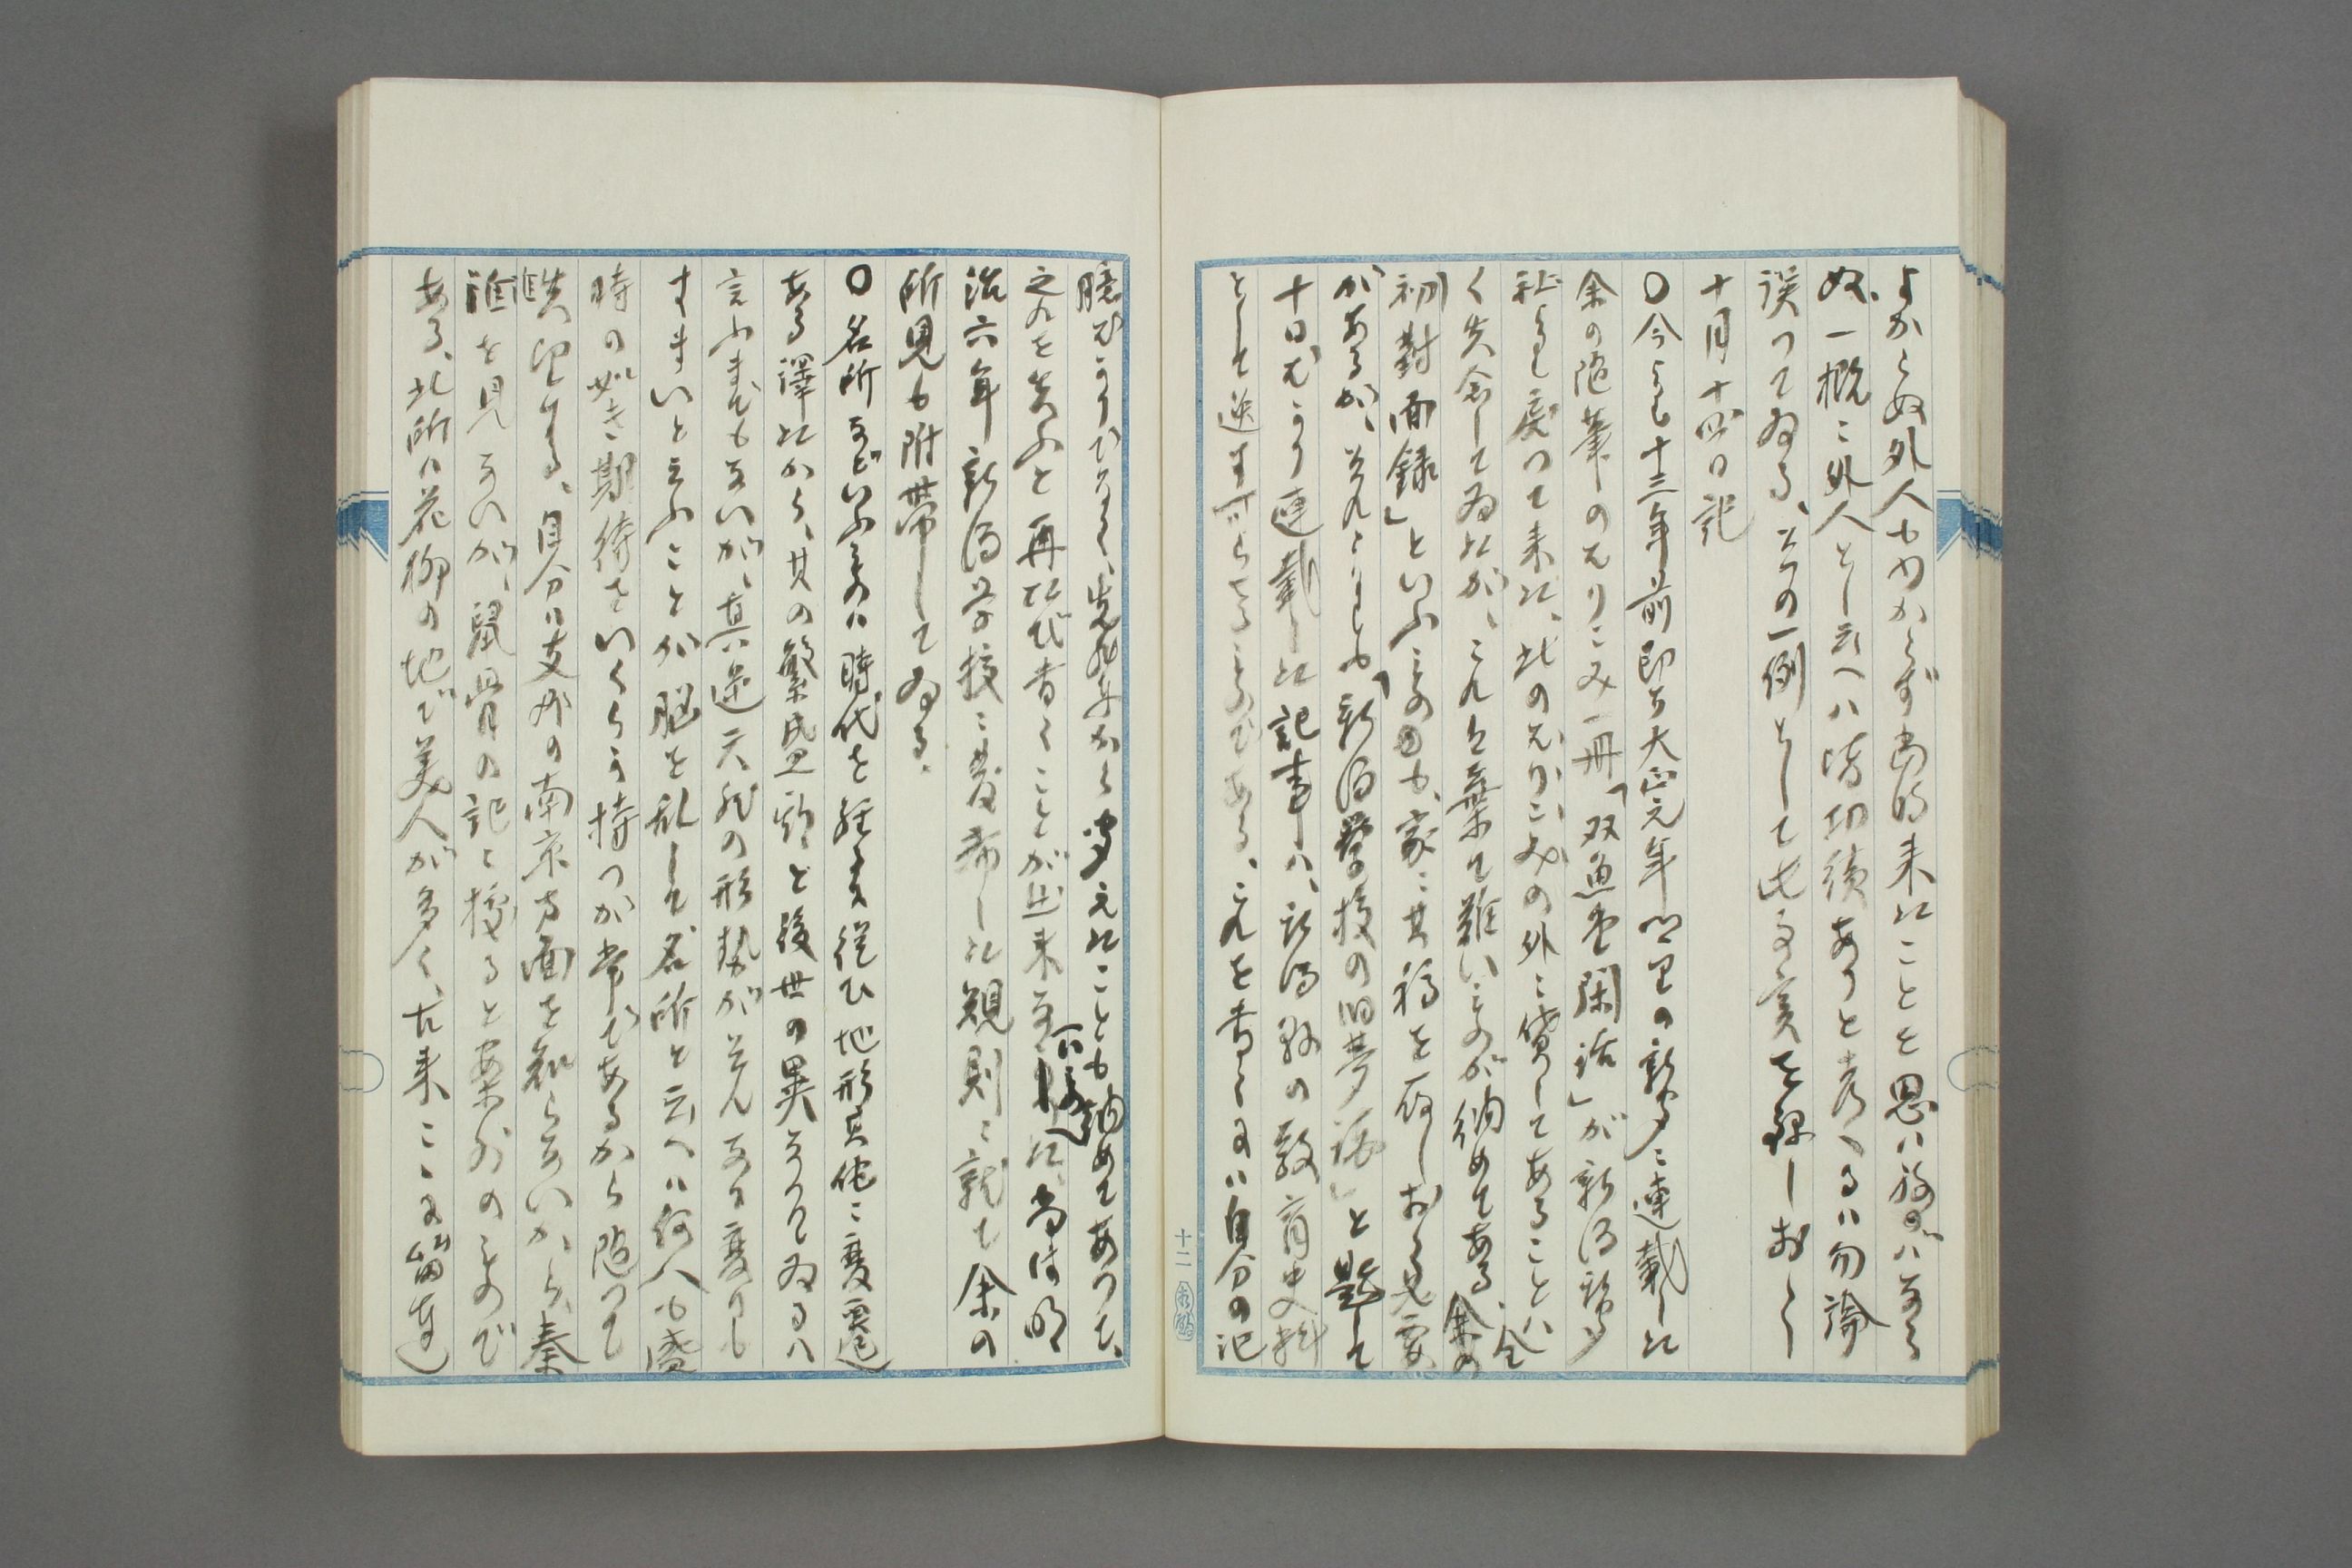 よからぬ外人も少からず当時来たことを思は祢ばなら
ぬ、一概に外人とし云へハ皆功績ありと考へるハ勿論
誤つてゐる、その一例として此事実を録しおく
十月十四日記
〇今より十三年前即ち大正元年 の新聞に連載した
余の随筆の切りこみ一冊「双魚堂閑話」が新潟新聞
社より戻つて来た、此の切りこみの外に貸してあることハ全
く失念してゐたが、こんと棄て難いものが納めてある、余の
初對面録」といふものも、家に其稿を存しおく必要
があるが、それよりも「新潟学校の旧夢譚」と題して
十日ばかり連載した記事ハ、新潟縣の教育史料
として逸す可らざるものである、これを書くにハ自分の記
十二
臆ばかりでなく、先輩から聞えたことも納めてあつて、
之れを失ふと再たび書くことが出来ない、当時明
治六年新潟学校に発布した規則に就て余の
所見も附帯してゐる、
〇名所などいふものハ時代を経るに従ひ地形其他に変遷
ある譯だから、其の繁盛期と後世の異なつてゐるハ
言ふまでもないが、真逆天然の形勢がそんなに変りも
すまいと云ふことが脳を乱して、名所と云へハ何人も盛
時の如き期待をいくらか持つが常であるから随つて
失望する、自分ハ支那の南京方面を知らないから、秦
淮を見ないが、鼠骨の記に據ると案外のもので
ある、此所ハ花柳の地で美人が多く、古来こゝに留連